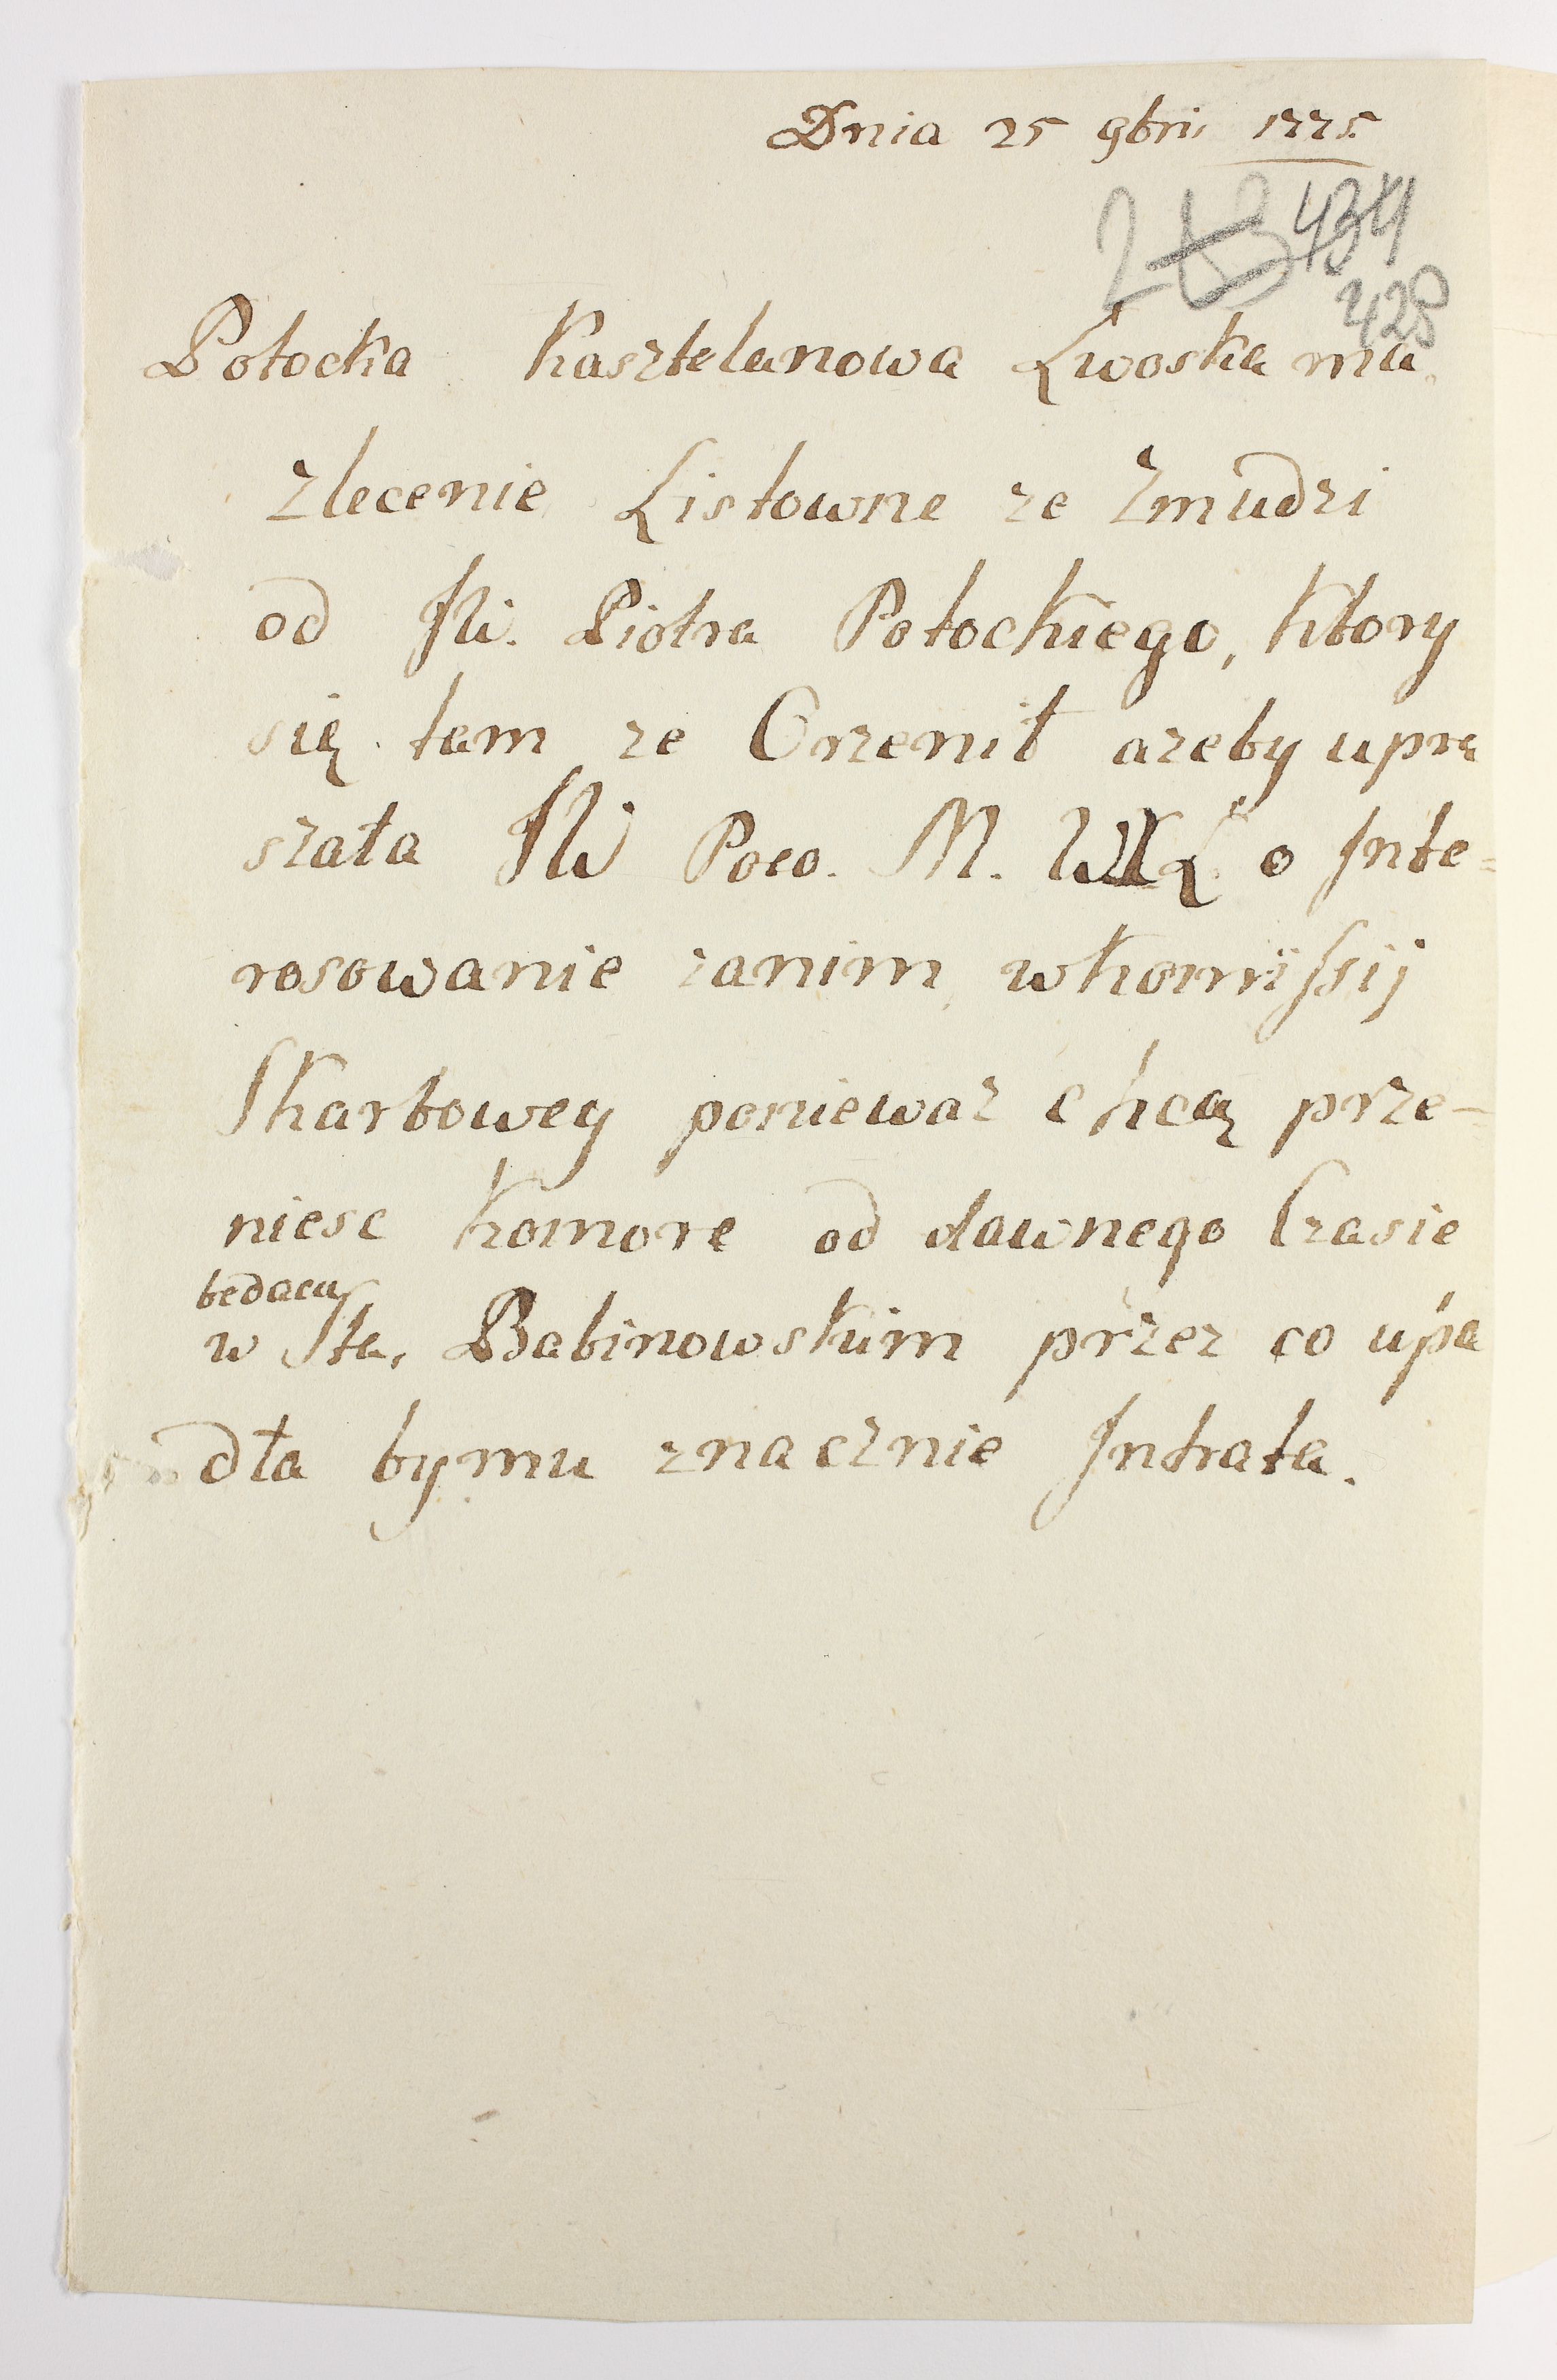 Dnia 25 9bris 1775
434
428
Potocka Kasztelanowa Lwoska ma
zlecenie Listowne ze Zmudzi
od JW. Piotra Potockiego, ktory
się tam ze Ozenił azeby upra
szała JW Poco. M. WXL o Inte=
resowanie zanim wkomissij
Skarbowey poniewaz chcą prze-
niesc komore od dawnego Czasie
bedacą
w Sta. Babinowskim przez co upa
dła bymu znacznie Intrata.